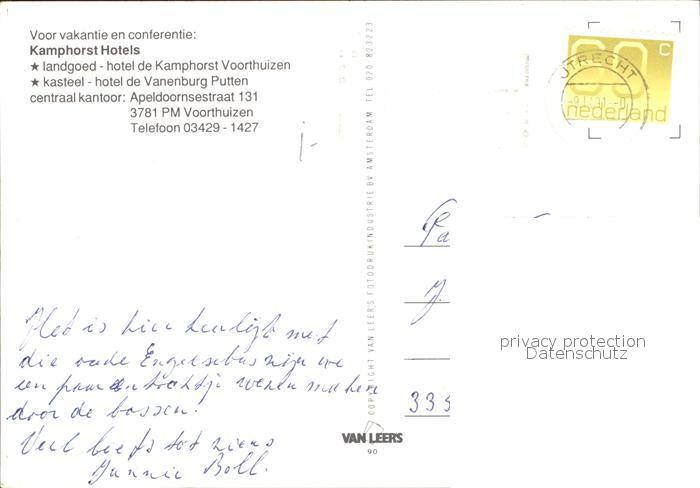 Voor vakantie en conferentie:
Kamphorst Hotels
★ landgoed - hotel de Kamphorst Voorthuizen
★ kasteel - hotel de Vanenburg Putten
centraal kantoor: Apeldoornsestraat 131
3781 PM Voorthuizen
Telefoon 03429 - 1427
COPYRIGHT VAN LEER'S FOTODRUKINDUSTRIE BV AMSTERDAM TEL 020 823223
60 C
nederland
UTRECHT
Fa
J.
335
privacy protection
Datenschutz
Het is hier heerlijk met
die oude Engelsebus zijn we
een paar tochtje
door de bossen.
Veel liefs tot ziens
Jannie Boll.
VAN LEERS
90